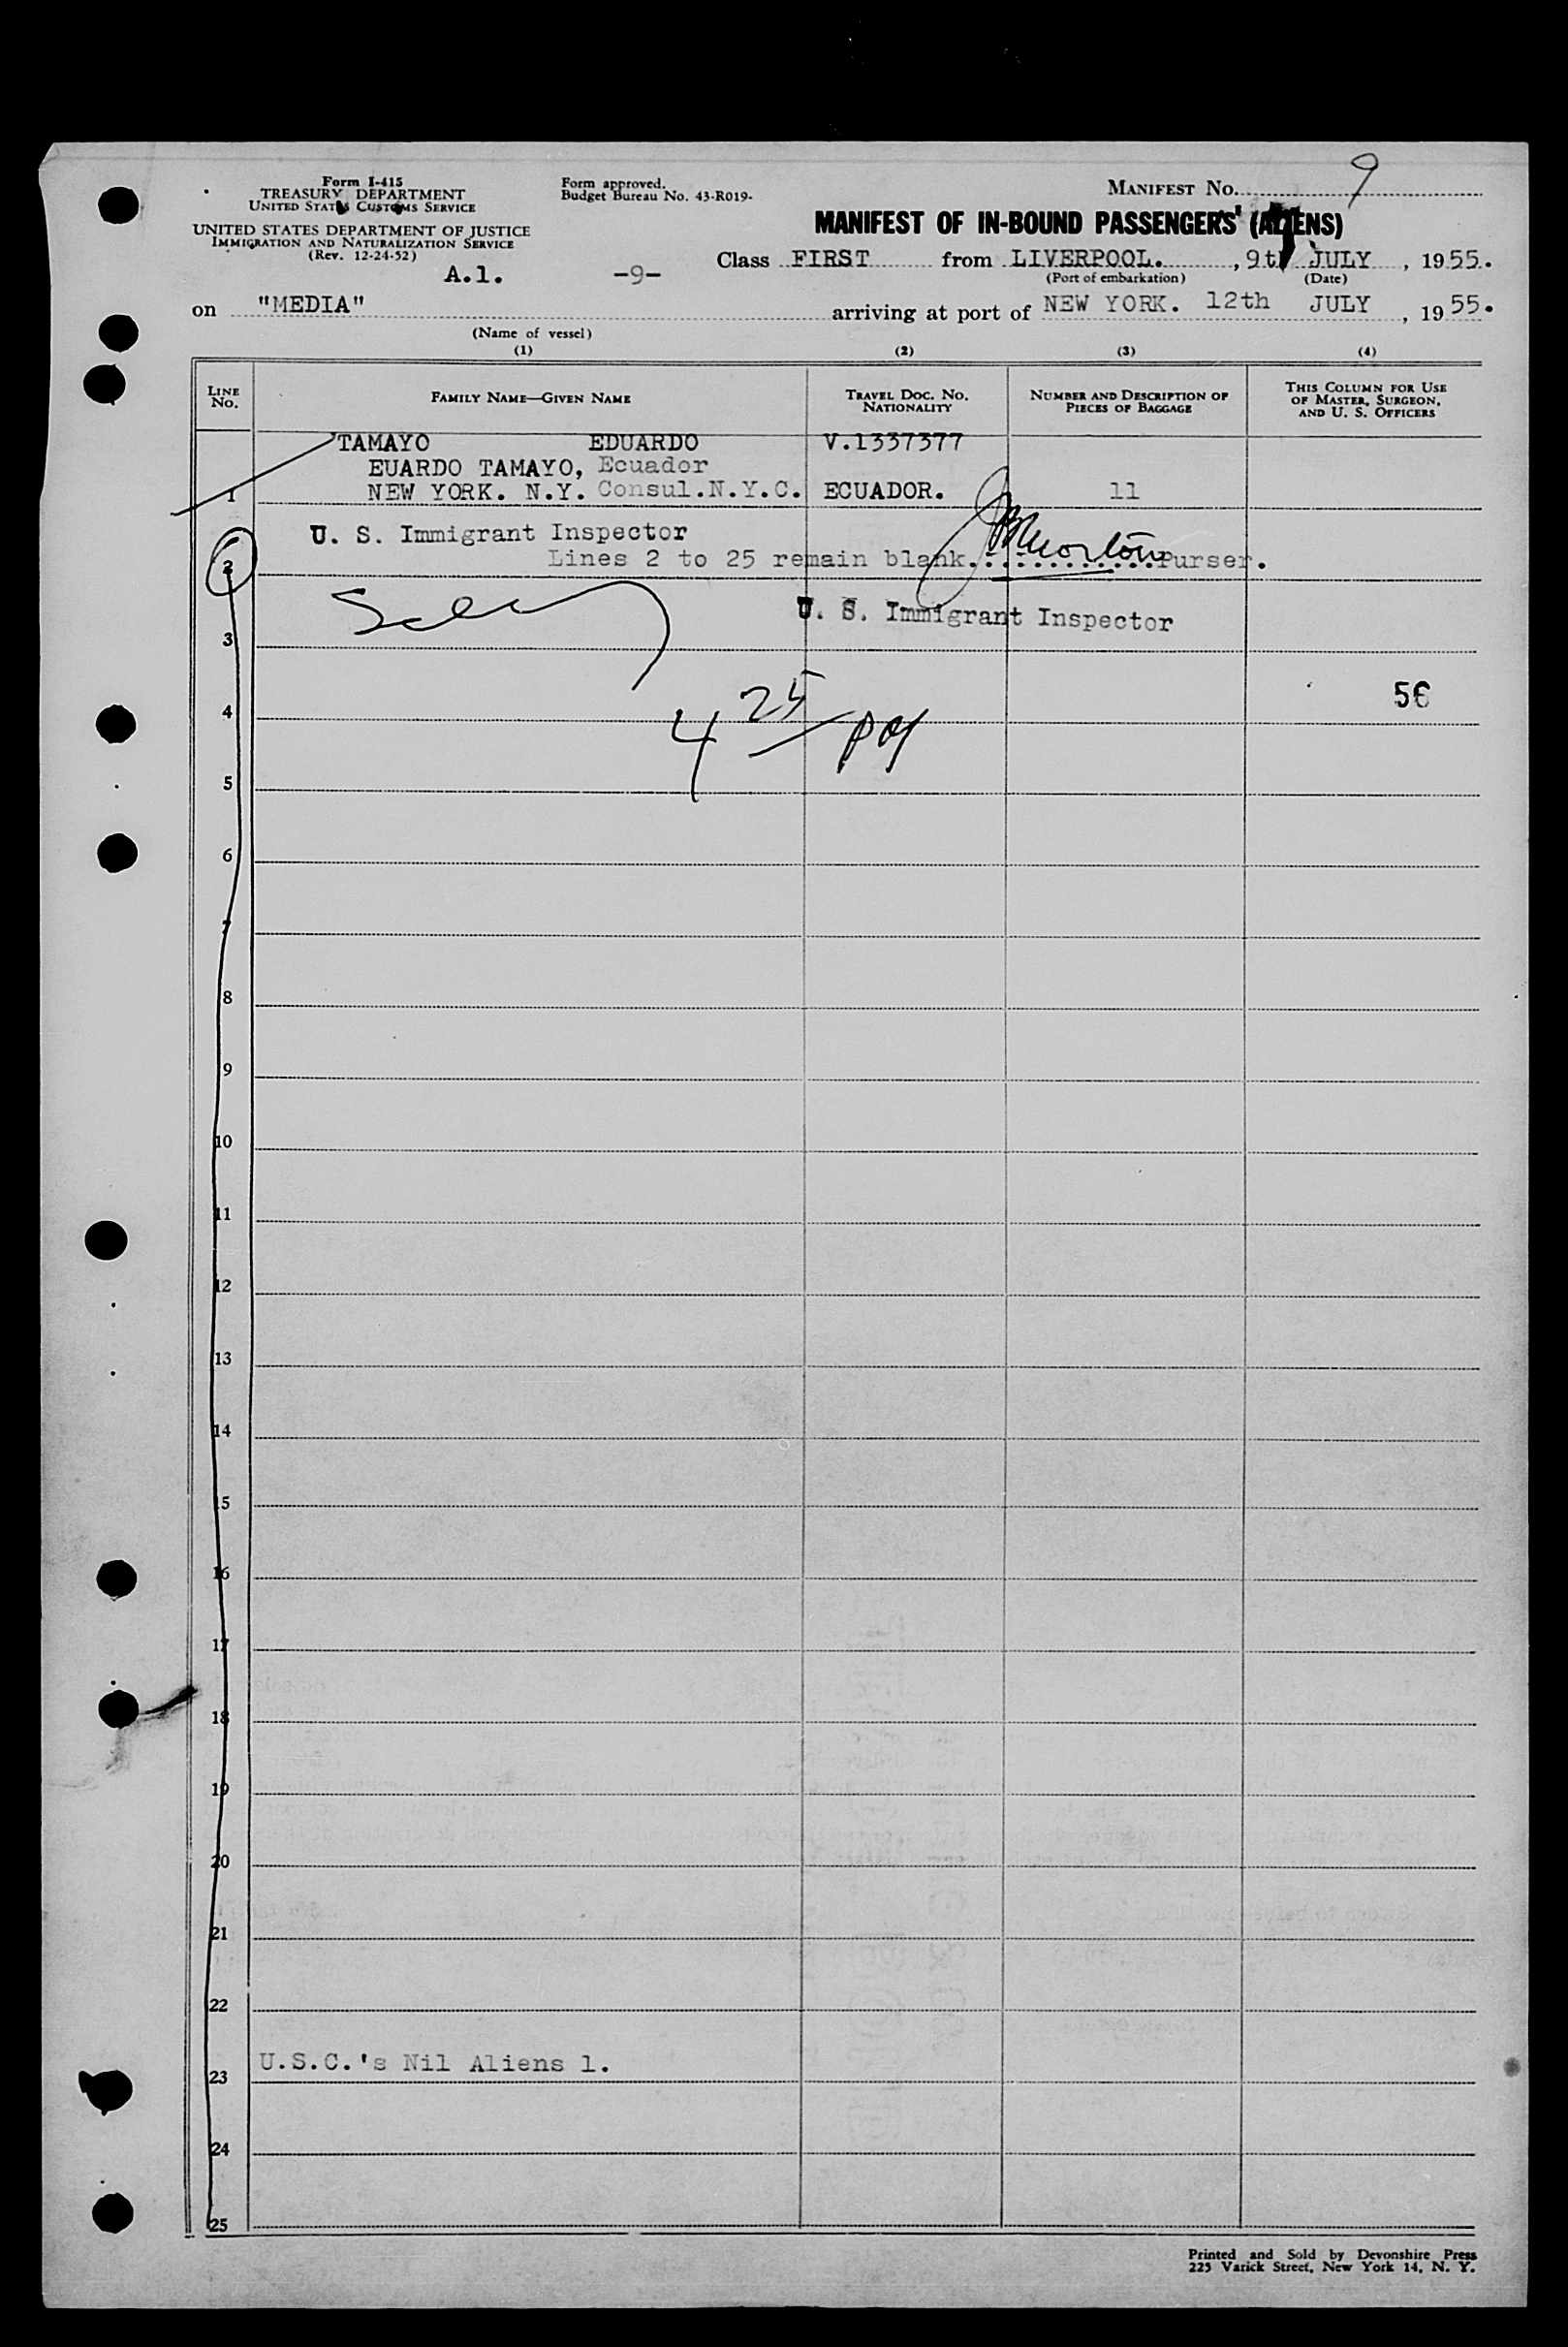 Form I-415
TREASURY DEPARTMENT
UNITED STATES CUSTOMS SERVICE
UNITED STATES DEPARTMENT OF JUSTICE
IMMIGRATION AND NATURALIZATION SERVICE
(Rev. 12-24-52)
Form approved.
Budget Bureau No. 43-R019-
MANIFEST NO. 9
MANIFEST OF IN-BOUND PASSENGERS (ALIENS)
A.1. -9- Class FIRST from LIVERPOOL. , 9th JULY , 1955.
(Port of embarkation) (Date)
on "MEDIA" arriving at port of NEW YORK. 12th JULY , 1955.
(Name of vessel)
(1) (2) (3) (4)
LINE NO. FAMILY NAME—GIVEN NAME TRAVEL DOC. NO. NATIONALITY NUMBER AND DESCRIPTION OF PIECES OF BAGGAGE THIS COLUMN FOR USE OF MASTER, SURGEON, AND U. S. OFFICERS
TAMAYO EDUARDO V.1337377
EUARDO TAMAYO, Ecuador
1 NEW YORK. N.Y. Consul.N.Y.C. ECUADOR. 11
U. S. Immigrant Inspector
2 Lines 2 to 25 remain blank. Purser.
U. S. Immigrant Inspector
3
4 25 56
5
6
7
8
9
10
11
12
13
14
15
16
17
18
19
20
21
22
U.S.C.'s Nil Aliens 1.
23
24
25
Printed and Sold by Devonshire Press
225 Varick Street, New York 14, N. Y.